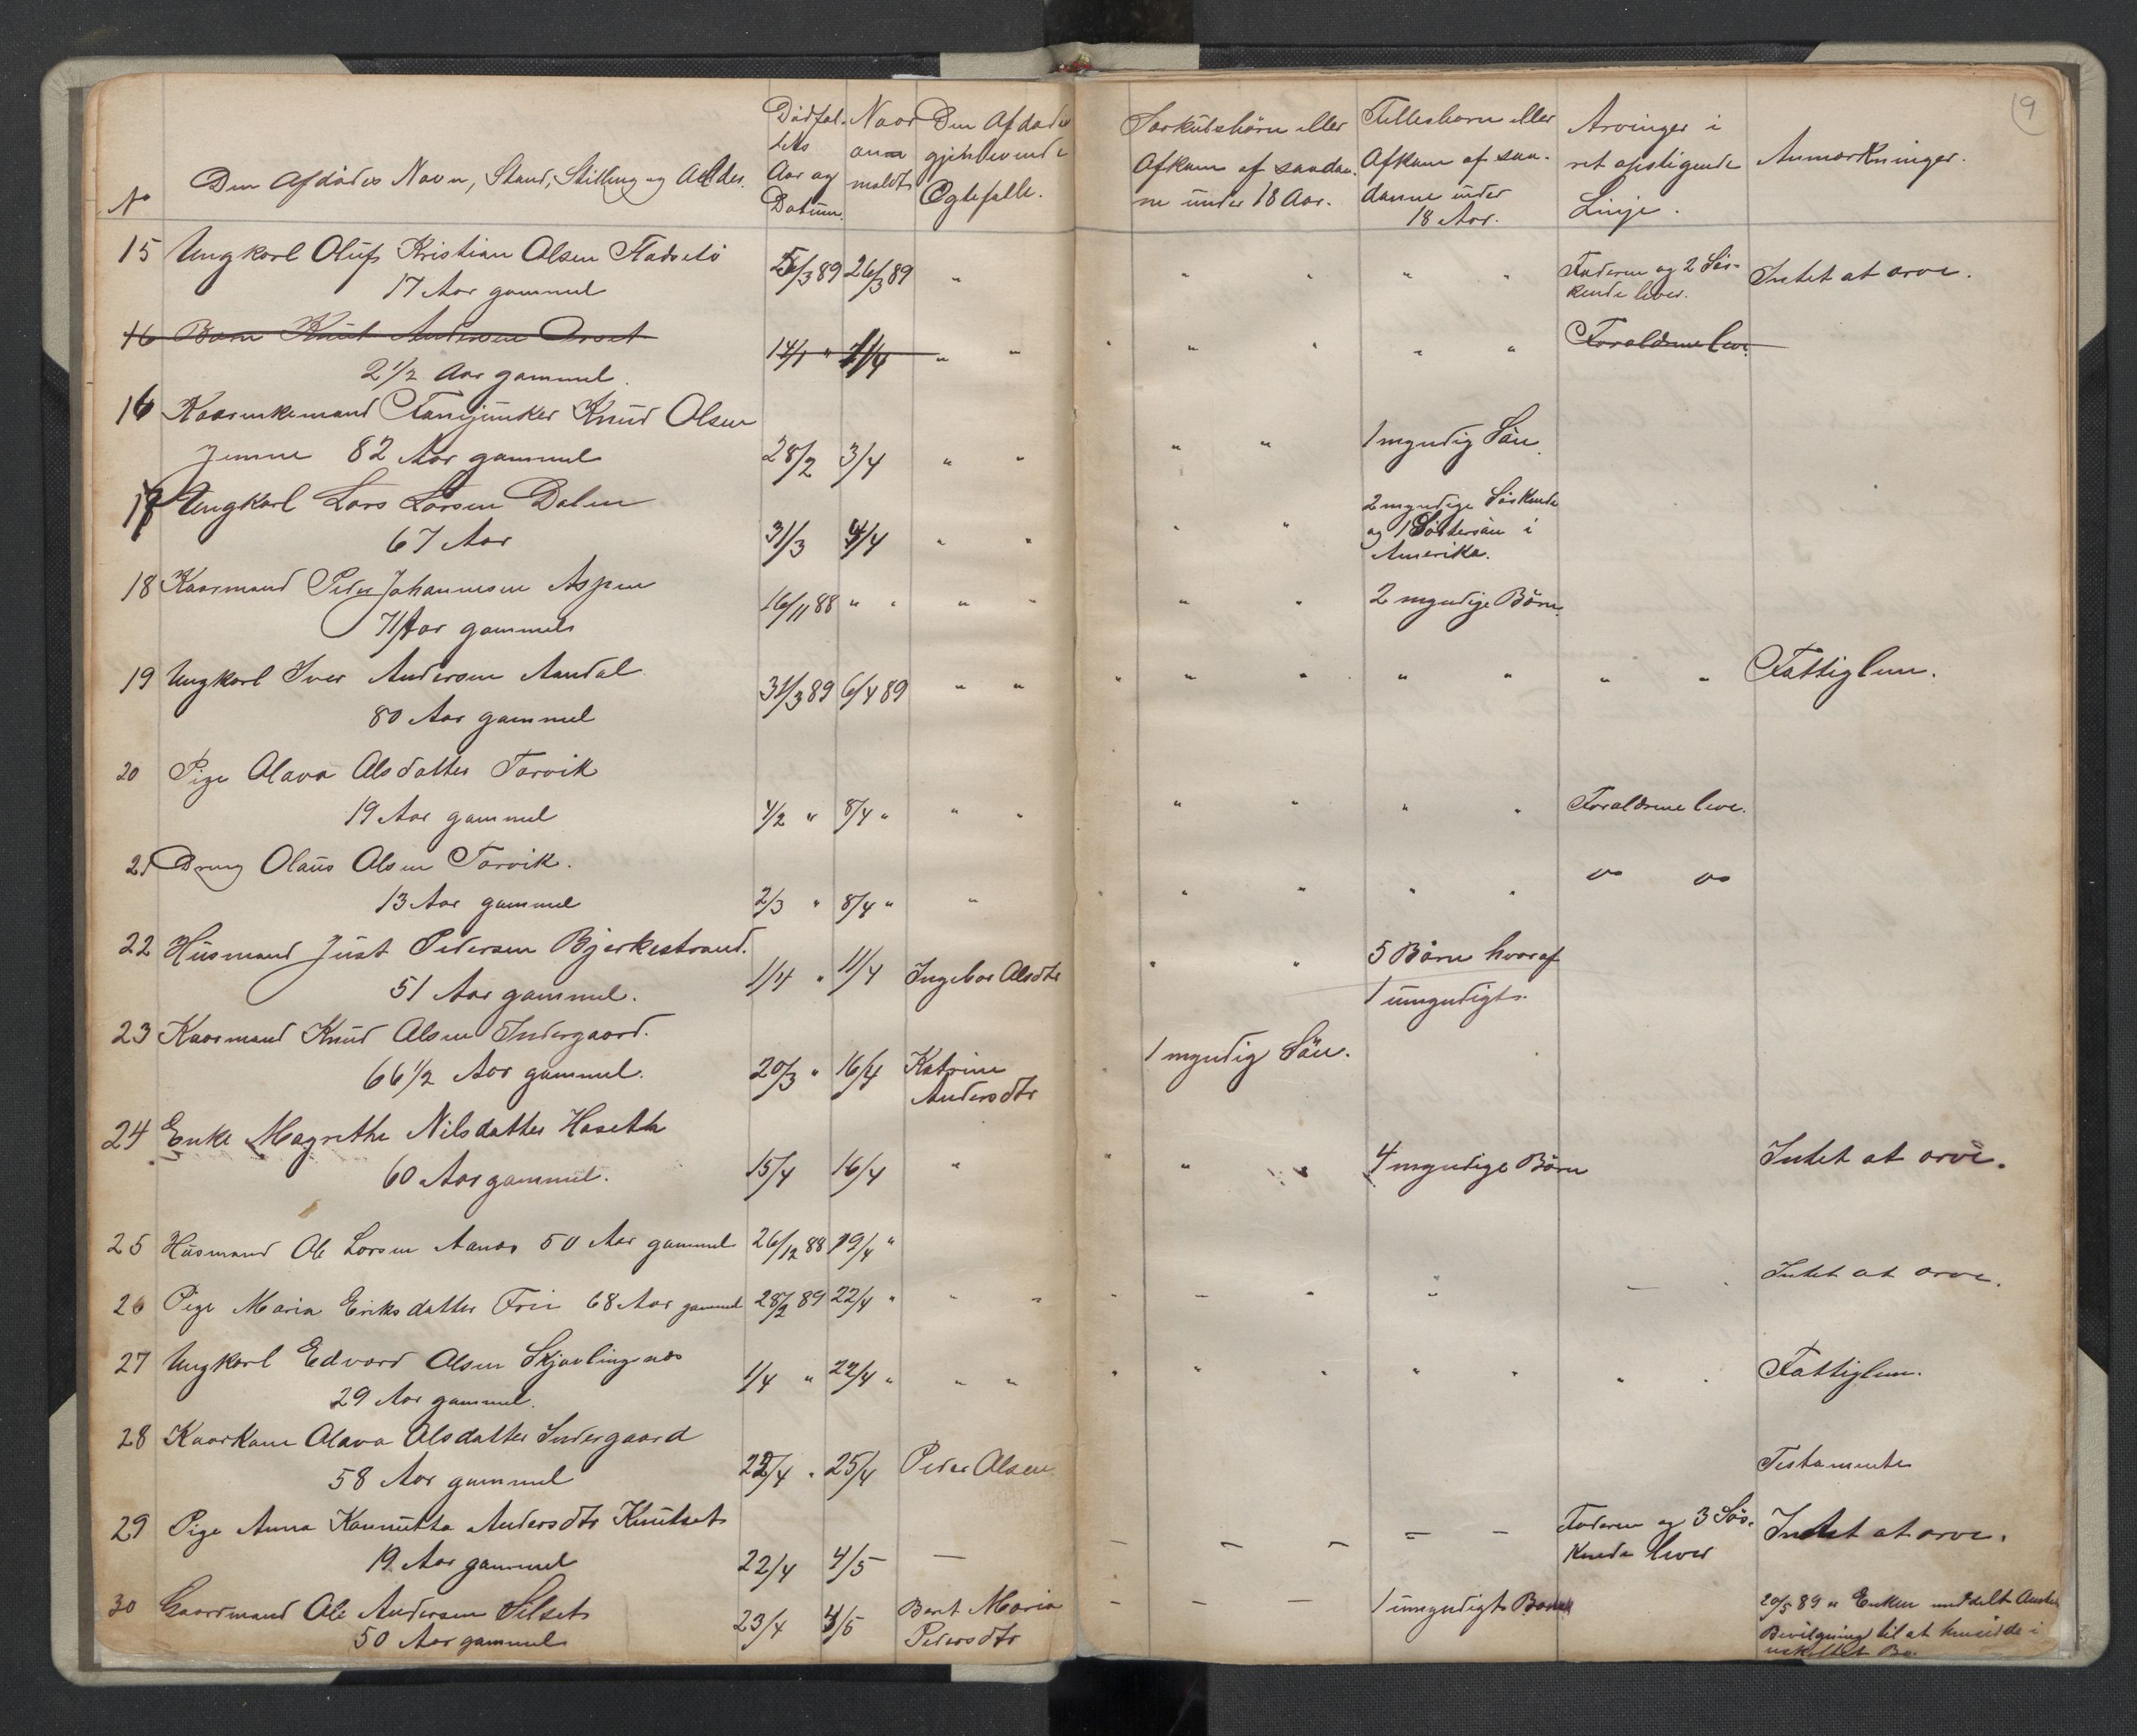 9
No
Den Afdødes Navn, Stand, Stilling og Alder.
Dødfal-
lets
Aar og
Datum.
Naar
an-
meldt
Den Afdødes
gjenlevende
Egtefælle.
Særkulsbørn eller
Afkom af saadan-
ne under 18 Aar.
Fællesbarn eller
Afkom af saa-
danne under
18 Aar.
Arvinger i
ret opstigende
Linje.
Anmærkninger.
15 Ungkarl Oluf Kristian Olsen Stadsets
17 Aar gammel 25/3 89 26/3 89 " " " " " Faderen og 2 Søs-
kende lever. Intet at arve.
16 Barn Knut Andersen Orset
2 1/2 Aar gammel. 14/1 " 1/4 " " " " " " " Forældrene leve.
16 Kaarenkemand Fanejunker Knud Olsen
Jemne 82 Aar gammel 28/2 3/4 " " " " 1 myndig Søn.
17 Ungkarl Lars Larsen Dalen
67 Aar 31/3 4/4 " " " " 2 myndige Søskende
og 1 Søstersøn i
Amerika.
18 Kaarmand Peder Johannesen Aspen
71 Aar gammel 16/11 88 " " " " " " 2 myndige Børn.
19 Ungkarl Iver Andersen Aandal
80 Aar gammel 31/3 89 6/4 89 " " " " " " " " " Fattiglem.
20 Pige Olava Olsdatter Torvik
19 Aar gammel 4/2 " 8/4 " " " " " " " Forældrene leve.
21 Dreng Olaus Olsen Torvik.
13 Aar gammel 2/3 " 8/4 " " " " " " " " "
22 Husmand Just Pedersen Bjerkestrand.
51 Aar gammel. 1/4 " 11/4 Ingebor Olsdtr " " 5 Børn hvoraf
1 umyndigt.
23 Kaarmand Knud Olsen Indergaard.
66 1/2 Aar gammel. 20/3 " 16/4 Katrine
Andersdtr 1 myndig Søn.
24 Enke Magrethe Nilsdatter Haseth
60 Aar gammel. 15/4 16/4 " " " " 4 myndige Børn Intet at arve.
25 Husmand Ole Larsen Aanæs 50 Aar gammel 26/12 88 19/4 "
26 Pige Maria Eriksdatter Frei 68 Aar gammel 28/2 89 22/4 " " " " Intet at arve.
27 Ungkarl Edvard Olsen Skjævlingsnæs
29 Aar gammel. 1/4 " 22/4 " " " " " " " " " Fattiglem.
28 Kaarkone Olava Olsdatter Indergaard
58 Aar gammel 22/4 " 25/4 Peder Olsen Testamente
29 Pige Anna Kanutta Andersdtr Knutset
19 Aar gammel 22/4 4/5 — — — — — — Faderen og 3 Søs-
kende lever Intet at arve.
30 Gaardmand Ole Andersen Silset
50 Aar gammel 23/4 4/5 Berit Maria
Pedersdtr — — — 1 umyndigt Barn 20/5 89 " Enken meddelt
Bevilgning til at hensidde i
uskiftet Bo.